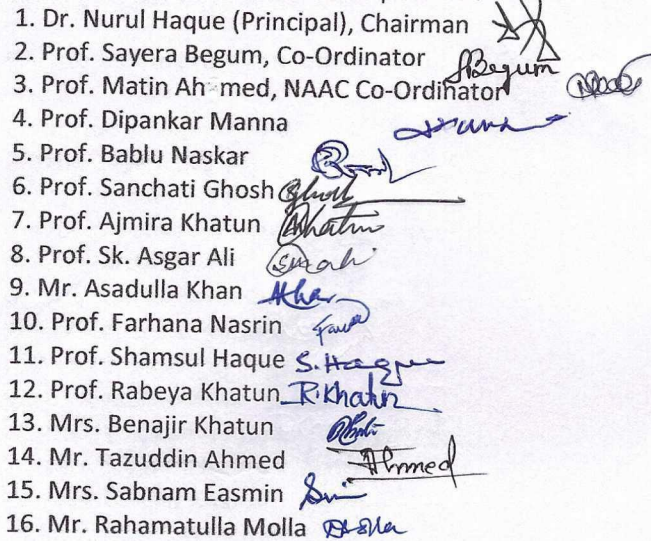 1. Dr. Nurul Haque (Principal), Chairman
2. Prof. Sayera Begum, Co-Ordinator SBegum
3. Prof. Matin Ah med, NAAC Co-Ordinator
4. Prof. Dipankar Manna
5. Prof. Bablu Naskar
6. Prof. Sanchati Ghosh Ghosh
7. Prof. Ajmira Khatun AKhatun
8. Prof. Sk. Asgar Ali
9. Mr. Asadulla Khan
10. Prof. Farhana Nasrin
11. Prof. Shamsul Haque S. Haque
12. Prof. Rabeya Khatun R.Khatun
13. Mrs. Benajir Khatun
14. Mr. Tazuddin Ahmed Ahmed
15. Mrs. Sabnam Easmin
16. Mr. Rahamatulla Molla